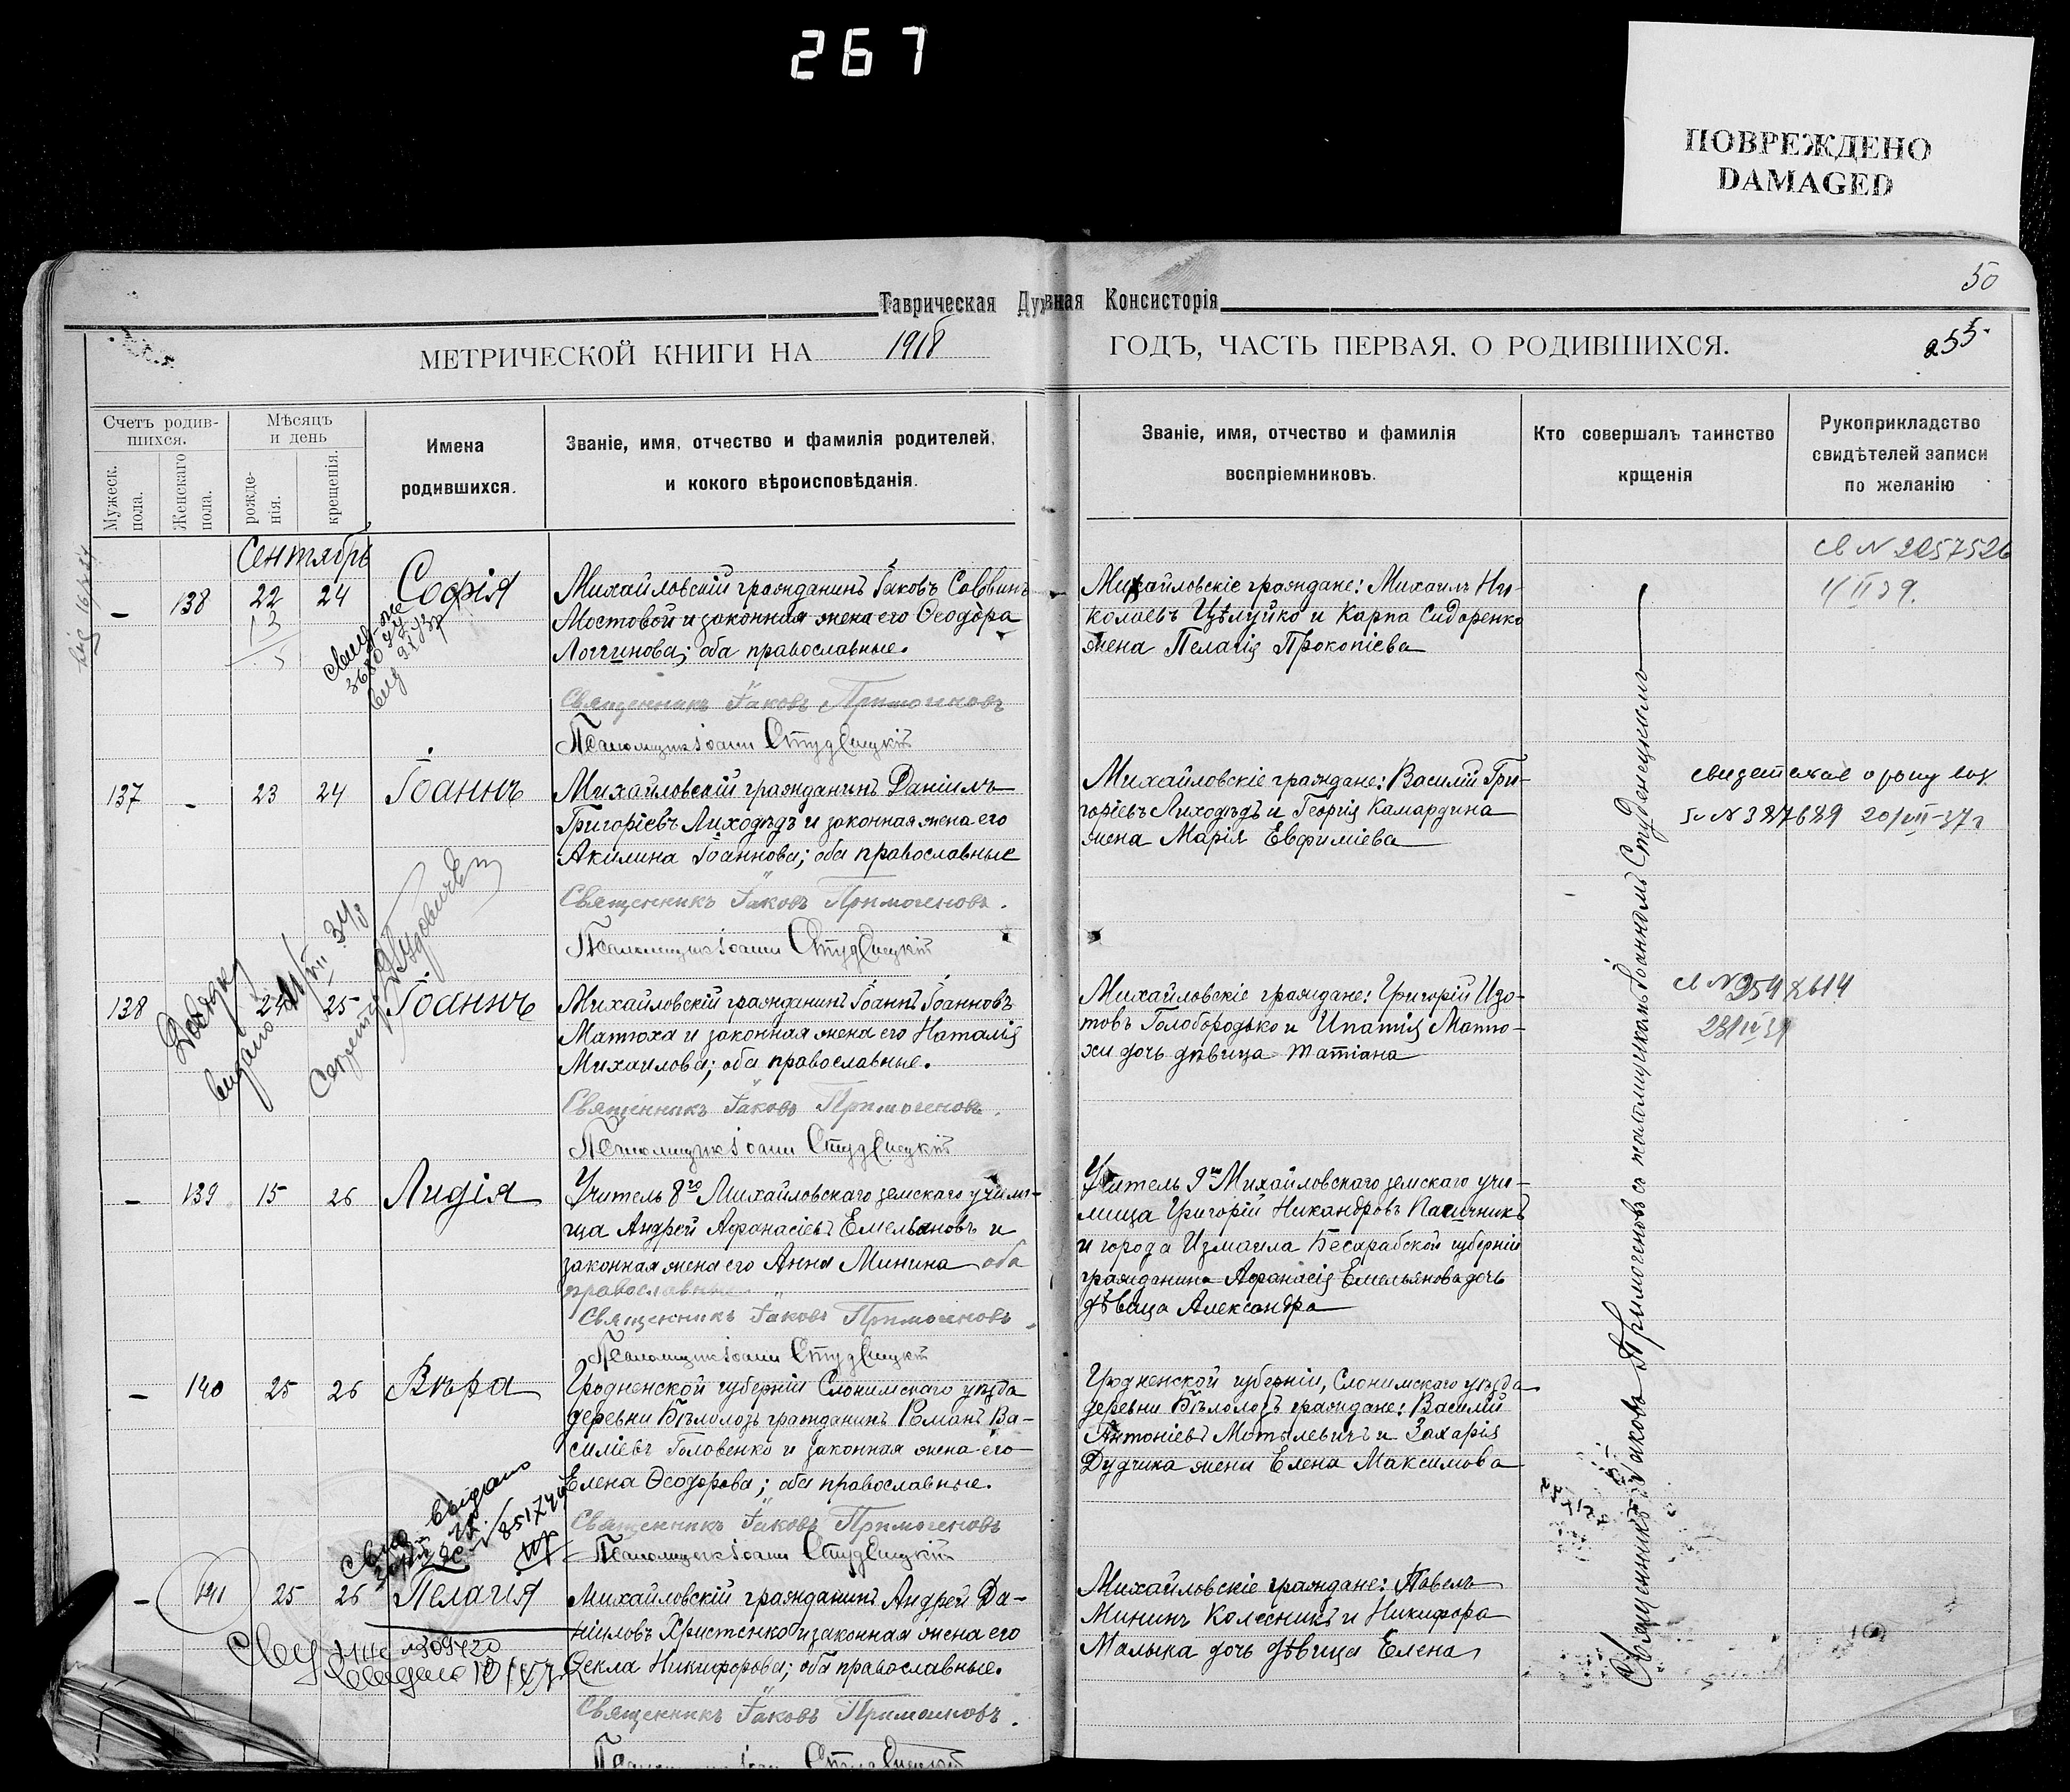 267
ПОВРЕЖДЕНО
DAMAGED
50
Таврическая Духовная Консисторія
МЕТРИЧЕСКОЙ КНИГИ НА 1918 ГОДЪ, ЧАСТЬ ПЕРВАЯ. О РОДИВШИХСЯ.
255.
Счетъ родив-
шихся.
Мужеск.
пола.
Женскаго
пола.
Мѣсяцъ
и день
рожде-
нія.
крещенія.
Имена
родившихся.
Званіе, имя, отчество и фамилія родителей,
и кокого вѣроисповѣданія.
Званіе, имя, отчество и фамилія
воспріемниковъ.
Кто совершалъ таинство
крщенія
Рукоприкладство
свидѣтелей записи
по желанію
Сентябрь
– 138 22 24 Софія
13
Михайловскій гражданинъ Іаковъ Саввинъ
Мостовой и законная жена его Ѳеодора
Логгинова; оба православные.
Священникъ Іаковъ Примогеновъ
Псаломщик Іоанн Студенецкій
Михайловскіе граждане: Михаилъ Ни-
колаевъ Цѣлуйко и Карпа Сидоренко
жена Пелагія Прокопіева
II 39.
137 – 23 24 Іоаннъ
Михайловскій гражданинъ Даніилъ
Григоріевъ Лиходѣдъ и законная жена его
Акилина Іоаннова; оба православные
Священникъ Іаковъ Примогеновъ.
Псаломщик Іоанн Студенецкій
Михайловскіе граждане: Василій Гри-
горіевъ Лиходѣдъ и Георгія Камардина
жена Марія Евфиміева
N 387689 20/VII-37г
138 24 25 Іоаннъ
Михайловскій гражданинъ Іоаннъ Іоанновъ
Матюха и законная жена его Наталія
Михаилова; оба православные.
Священникъ Іаковъ Примогеновъ.
Псаломщик Іоанн Студенецкій
Михайловскіе граждане: Григорій Изо-
товъ Голобородько и Ипатія Матю-
хи дочь дѣвица Татіана
– 139 15 26 Лидія
Учитель 8го Михайловскаго земскаго учили-
ща Андрей Аѳанасіевъ Емельяновъ и
законная жена его Анна Минина оба
православные.
Священникъ Іаковъ Примогеновъ
Псаломщик Іоанн Студенецкій
Учитель 9го Михайловскаго земскаго учи-
лища Григорій Никандровъ Пасичникъ
и города Измаила Бесарабской губерніи
гражданина Аѳанасія Емельянова дочь
дѣвица Александра
– 140 25 26 Вѣра
Гродненской губерніи Слонимскаго уѣзда
деревни Бѣлолозъ гражданинъ Романъ Ва-
силіевъ Головенко и законная жена его
Елена Ѳеодорова; оба православные.
Священникъ Іаковъ Примогеновъ
Псаломщик Іоанн Студенецкій
Гродненской губерніи, Слонимскаго уѣзда
деревни Бѣлолозъ граждане: Василій
Антоніевъ Мотылевичъ и Захарія
Дудчика жена Елена Максимова
– 141 25 26 Пелагія
Михайловскій гражданинъ Андрей Да-
ніиловъ Христенко и законная жена его
Ѳекла Никифорова; оба православные.
Священникъ Іаковъ Примогеновъ.
Псаломщик Іоанн Студенецкій
Михайловскіе граждане: Павелъ
Мининъ Колесникъ и Никифора
Малыка дочь дѣвица Елена
Священникъ Іаковъ Примогеновъ съ псаломщикомъ Іоанномъ Студенецкимъ